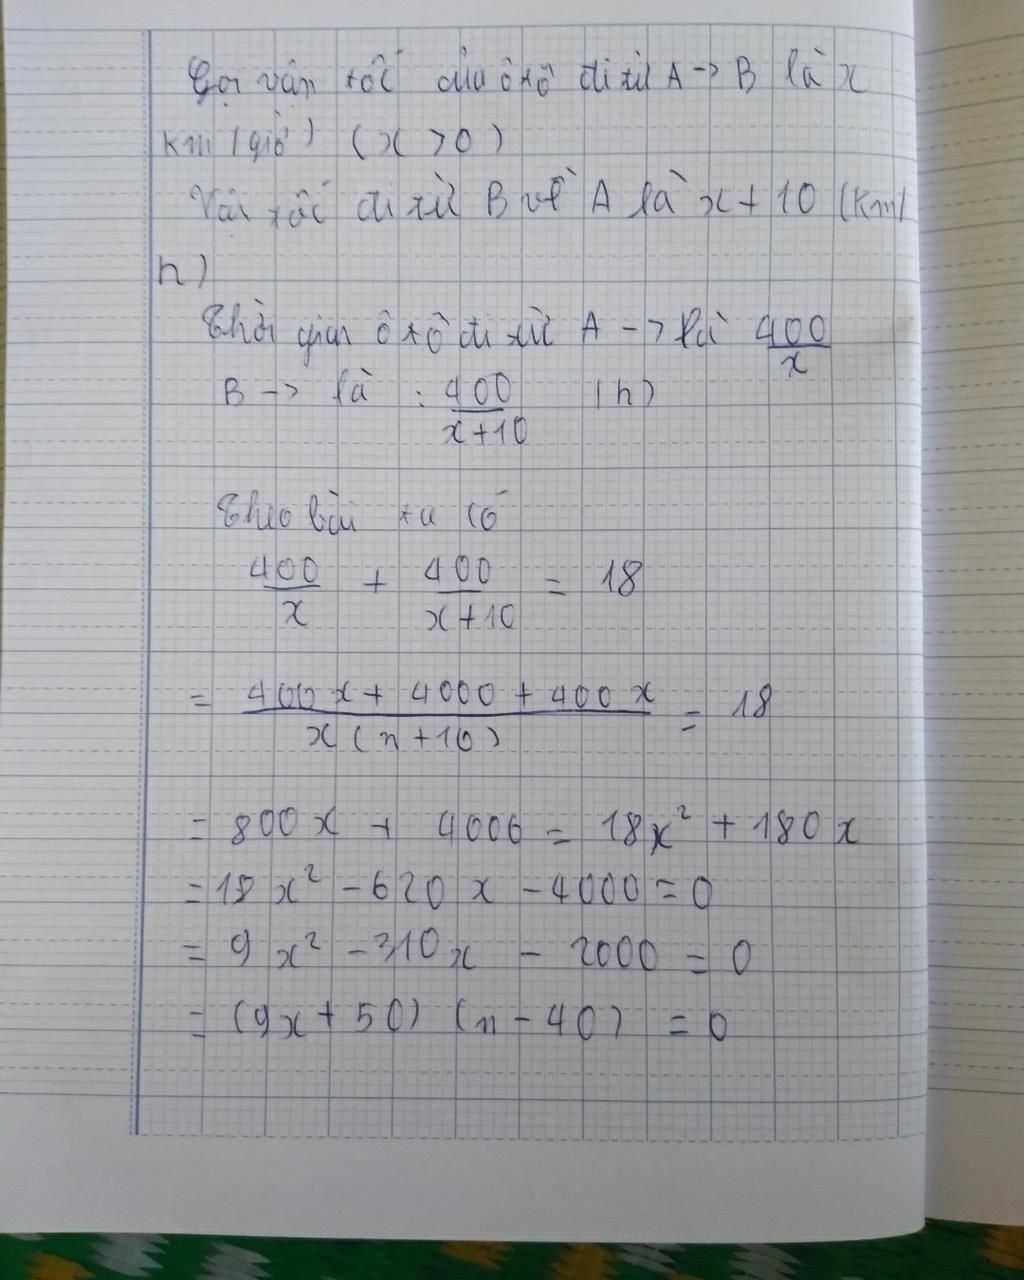 Gọi vận tốc của ô tô đi từ A -> B là x
km/giờ) (x > 0)
Vận tốc đi từ B về A là x + 10 (km/
h)
Thời gian ô tô đi từ A -> là 400/x
B -> là : 400/(x+10) (h)
Theo bài ta có
400/x + 400/(x+10) = 18
= (400x + 4000 + 400x)/(x(n+10)) = 18
= 800x + 4000 = 18x² + 180x
= 18x² - 620x - 4000 = 0
= 9x² - 310x - 2000 = 0
= (9x + 50) (n - 40) = 0